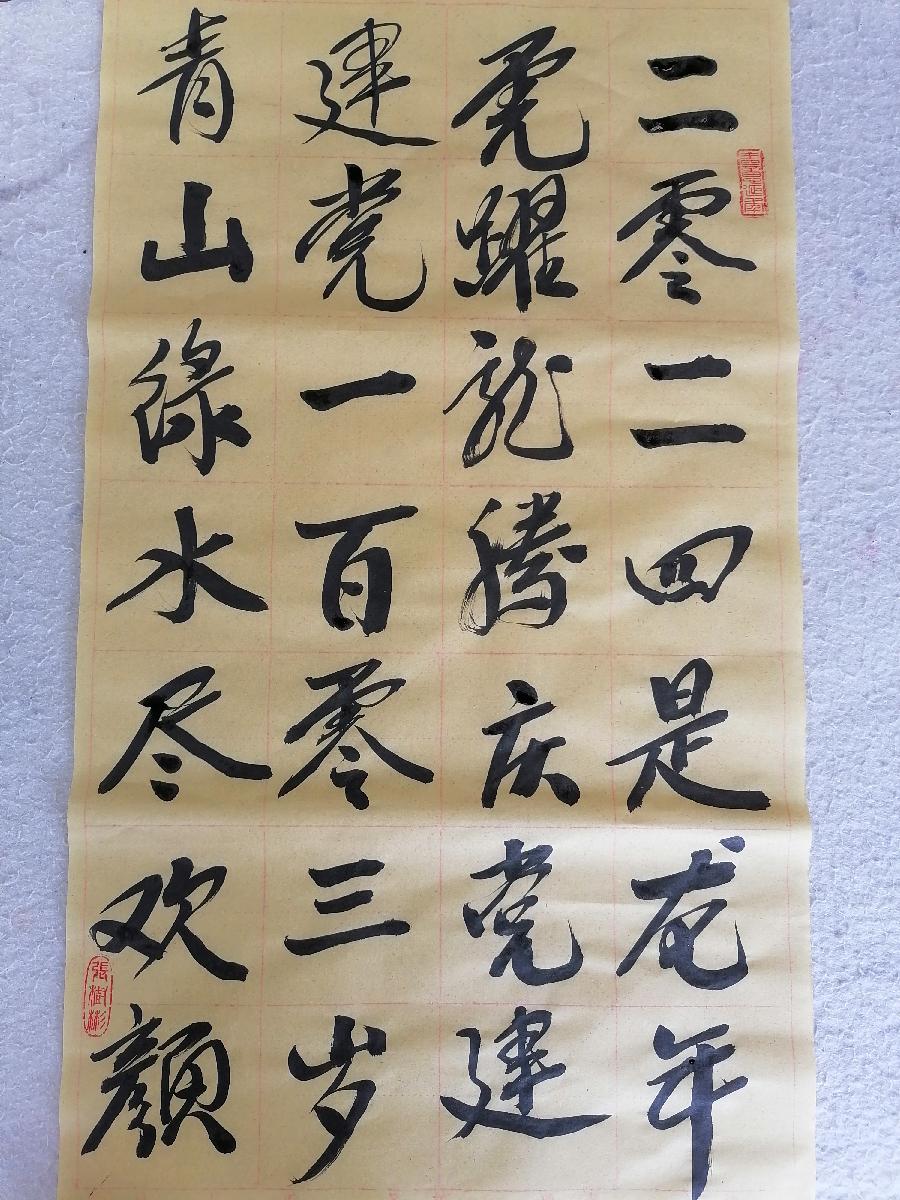 二零二四是龙年
虎躍龍腾庆党建
建党一百零三岁
青山緑水尽欢颜
張樹彬